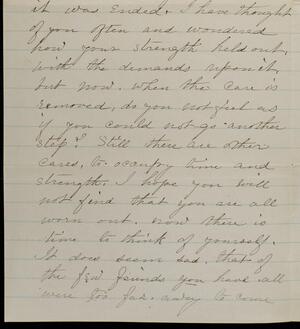 it was ended. I have thought
of you often and wondered
how your strength held out,
with the demands upon it,
but now. when the care is
removed, do you not feel as
if you could not go another
step? Still there are other
cares, to occupy time and
strength. I hope you will
not find that you are all
worn out. now there is
time to think of yourself.
It does seem sad. that of
the few friends you have all
were too far away to come